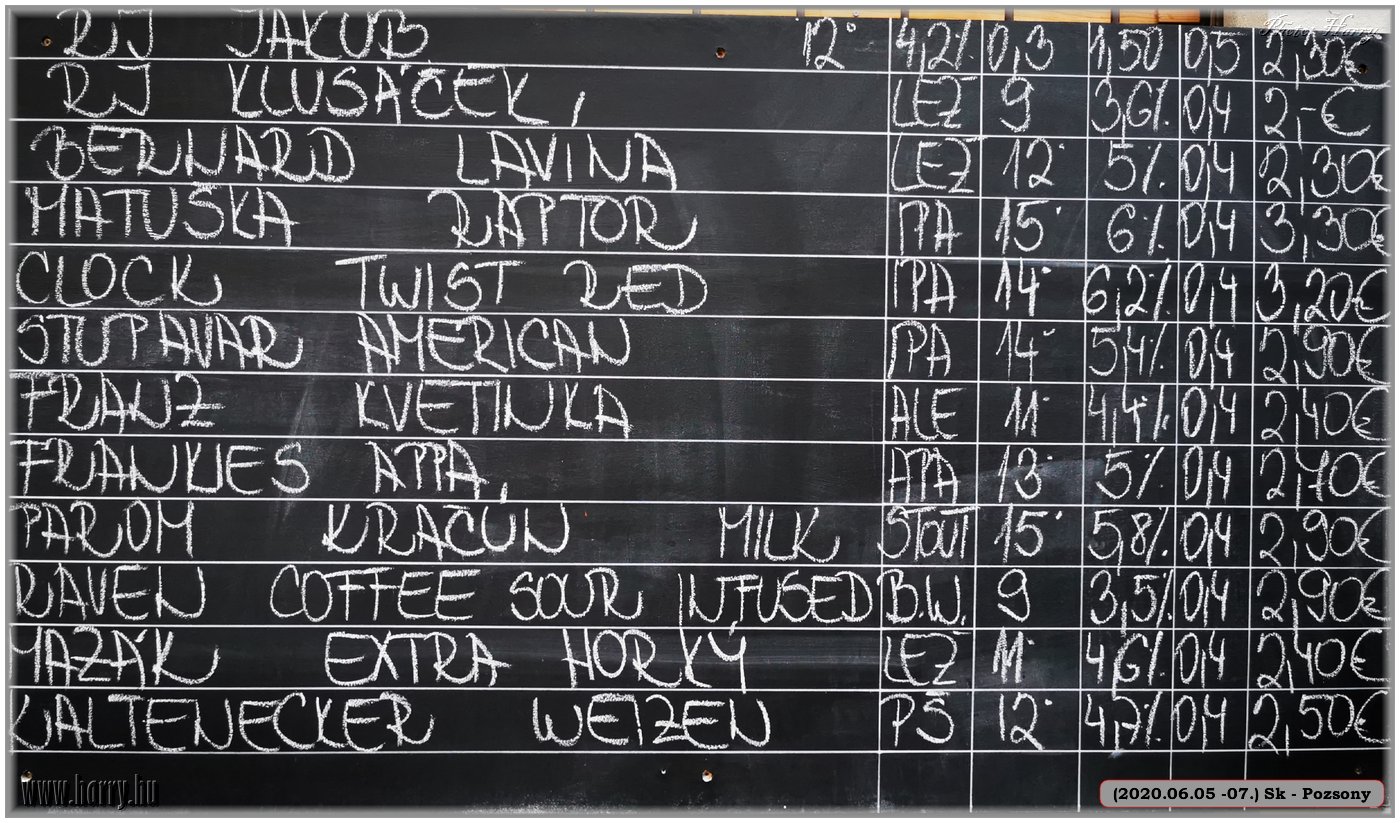 RJ JAKUB 12° 4,2% 0,3 1,50 0,5 2,30€
RJ KLUSÁČEK, LEŽ 9 3,6% 0,4 2,-€
BERNARD LAVINA LEŽ 12° 5% 0,4 2,30€
MATUŠKA RAPTOR IPA 15° 6% 0,4 3,30€
CLOCK TWIST RED IPA 14° 6,2% 0,4 3,20€
STUPAVAR AMERICAN IPA 14° 5,4% 0,4 2,90€
FRANZ KVETINKA ALE 11° 4,4% 0,4 2,40€
FRANKIES APPA, APA 13° 5% 0,4 2,70€
PAROM KRAČUN MILK STOUT 15° 5,8% 0,4 2,90€
RAVEN COFFEE SOUR INFUSED B.W. 9 3,5% 0,4 2,90€
MAZÁK EXTRA HORKÝ LEŽ 11° 4,6% 0,4 2,40€
KALTENECKER WEIZEN PŠ 12° 4,7% 0,4 2,50€
www.horry.hu
(2020.06.05 -07.) Sk - Pozsony